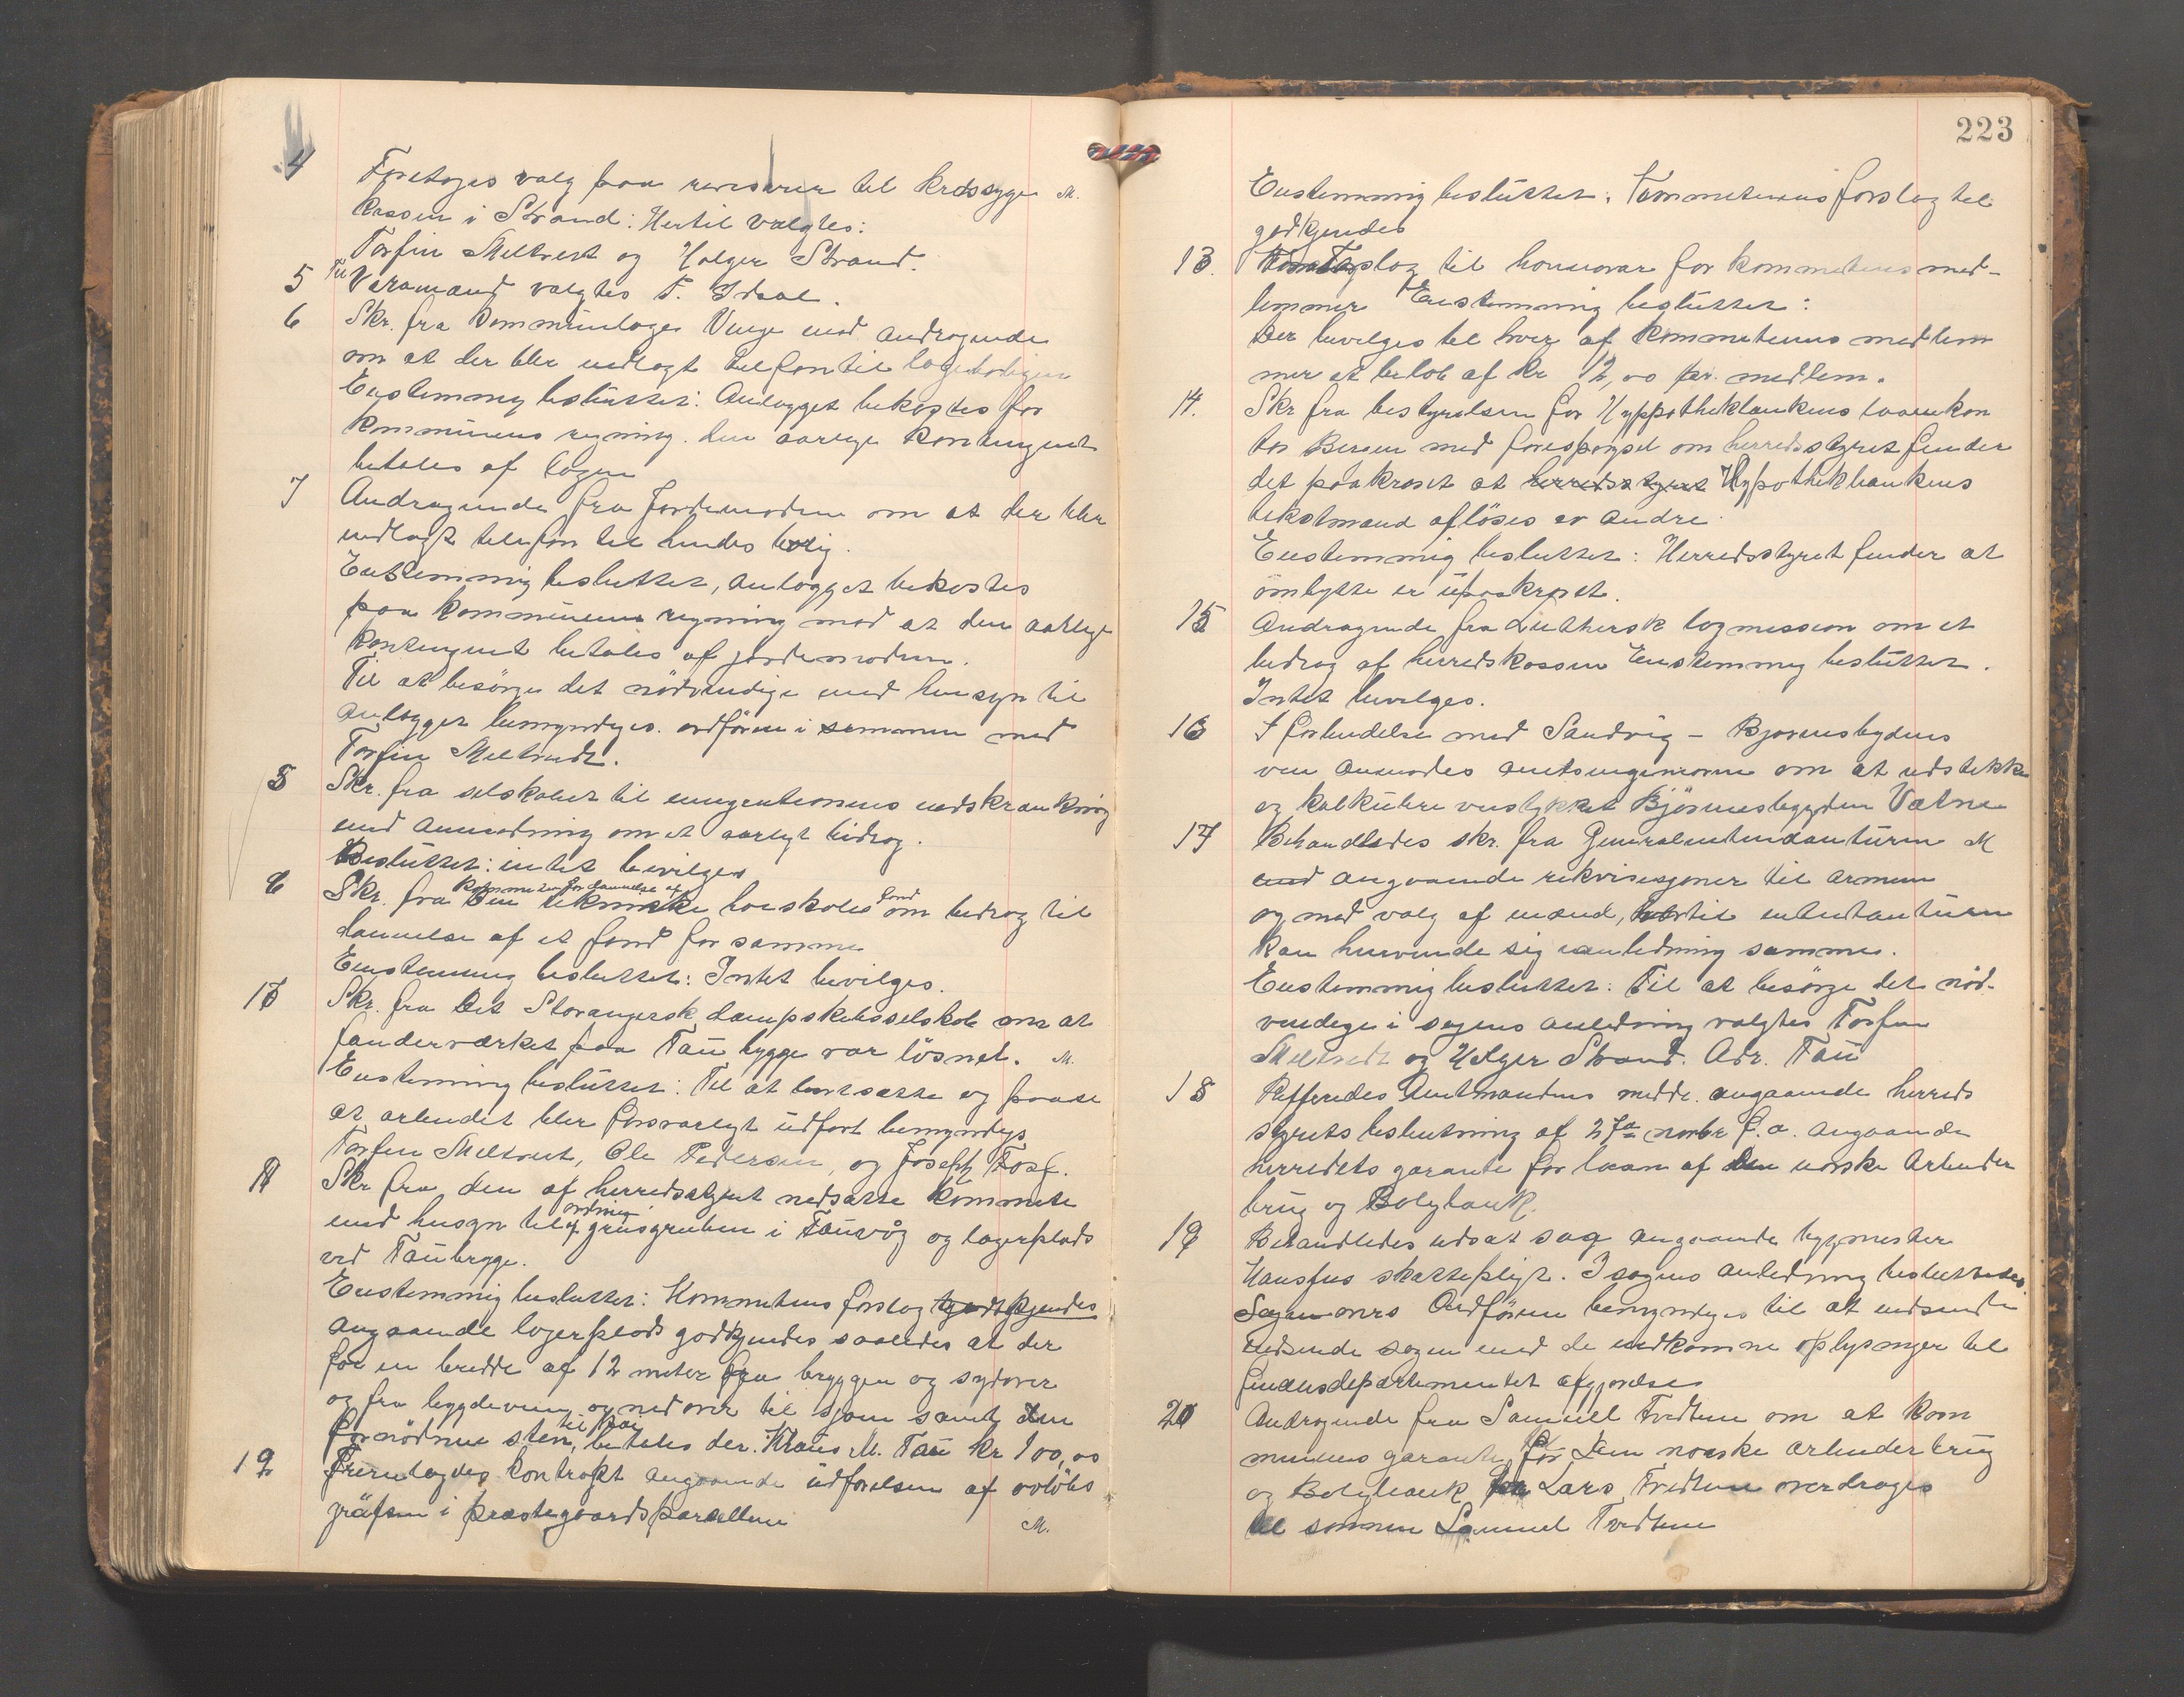 4 Foretoges valg paa revisorer til kredssyge M.
kassen i Strand: Hertil valgtes:
Torfin Meltveit og Holger Strand.
5 Til Varamand valgtes T. Idsal.
6 Skr. fra Kommunelæge Unge med andragende
om at der blir indlagt telefon til lægeboligen
Enstemmig besluttet: Anlægget bekostes for
kommunens regning. den aarlige kontingent
betales af lægen
7 Andragende fra Jordemoderen om at der blir
indlagt telefon til hendes bolig.
Enstemmig besluttet, anlægget bekostes
paa kommunens regning mod at den aarlige
kontingent betales af jordemoderen.
Til at besörge det nödvendige med hensyn til
anlægget bemyndiges ordfören i sammen med
Torfin Meltveit.
8 Skr. fra selskabet til emigrationens indskrænkning
med anmodning om et aarligt bidrag.
Besluttet: intet bevilges
9 Skr. fra Komiteen for dannelse af Den tekniske høiskoles fond om bidrag til
dannelse af et fond for samme
Enstemmig besluttet: Intet bevilges.
10 Skr. fra Det Stavangerske dampskibsselskab om at
fenderværket paa Tau brygge var lösnet. M.
Enstemmig besluttet: Til at bortsætte og paase
at arbeidet blir forsvarligt udfört bemyndiges
Torfin Meltveit, Ole Pedersen, og Joseph Fosf.
11 Skr fra den af herredsstyret nedsatte Kommite
med hensyn til ordning af grusgruben i Tauvåg og lagerplads
ved Taubrygge.
Enstemmig besluttet: Kommiteens forslag godkjendes
angaaende lagerplads godkjendes saaledes at der
for en bredde af 12 meter fra bryggen og sydover
og fra bygdeveien og nedover til sjøen samt den
fornødne sten til kai, betales der Klaus M. Tau kr 100,00
12 Fremlagdes kontrakt angaaende udførelsen af avløbs
gröften i præstegaardsparcellene M.
223
Enstemmig besluttet. Kommiteens forslag til
godkjendes
13. forslag til honnorar for kommiteens med-
lemmer Enstemmig besluttet:
Der bevilges til hver af kommiteens medlem
mer et beløb af kr 12,00 pr. medlem.
14. Skr fra bestyrelsen for Hyppothekbankens laanekon
tor Bergen med forespørgsel om herredsstyret finder
det paakrævet at herredsstyret Hypothekbankens
takstmænd aflöses av andre.
Enstemmig besluttet: Herredsstyret finder at
ombytte er upaakrævet.
15 Andragende fra Luthersk lægmission om et
bidrag af herredskassen Enstemmig besluttet.
Intet bevilges.
16 I forbindelse med Sandvig - Bjørensbygdens
vei anmodes amtsingeniøren om at udstikke
og kalkulere veistykket Björensbygden Vatne
17 Behandledes skr. fra Generalintendanturen M
med angaaende rekvisisjoner til armeen
og med valg af mænd, hvortil intendanturen
kan henvende sig i anledning samme.
Enstemmig besluttet: Til at besörge det nöd-
vendige i sagens anledning valgtes Torfin
Meltveit og Holger Strand. Adr. Tau
18 Refferedes Amtmandens medd. angaaende herreds
styrets beslutning af 27de novbr f.a. angaaende
herredets garanti for laan af den norske Arbeider
brug og Boligbank.
19 Behandledes udsat sag angaaende bygmester
Hansens skattepligt. I sagens anledning besluttedes
Sagen overs Ordfören bemyndiges til at indsende
indsende sagen med de indkomne oplysninger til
finansdepartementet afgjørelse
20 Andragende fra Samuel Tvedten om at kom
munens garanti for Den norske arbeiderbrug
og Boligbank for Lars Tvedten overdrages
til sønnen Samuel Tvedten